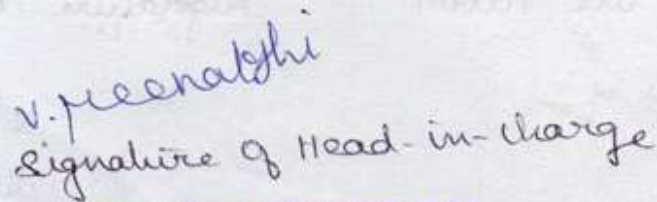 V. Meenakshi
Signature of Head-in-charge